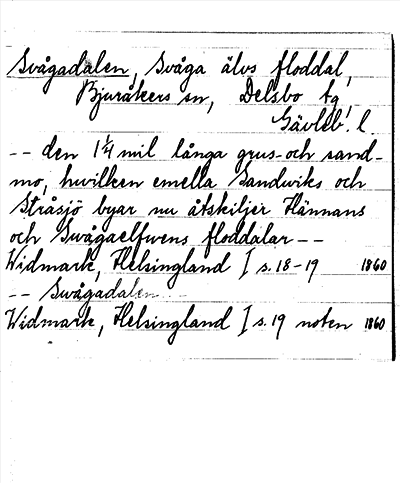 Svågadalen, Svåga älvs floddal,
Bjuråkers sn, Delsbo tg,
Gävleb. l.
-- den 1 1/4 mil långa grus- och sand-
mo, hvilken emella Sandwiks och
Stråsjö byar nu åtskiljer Hännans
och Swågaelfwens floddalar --
Widmark, Helsingland I s. 18-19 1860
-- Swågadalen --
Widmark, Helsingland I s. 19 noten 1860